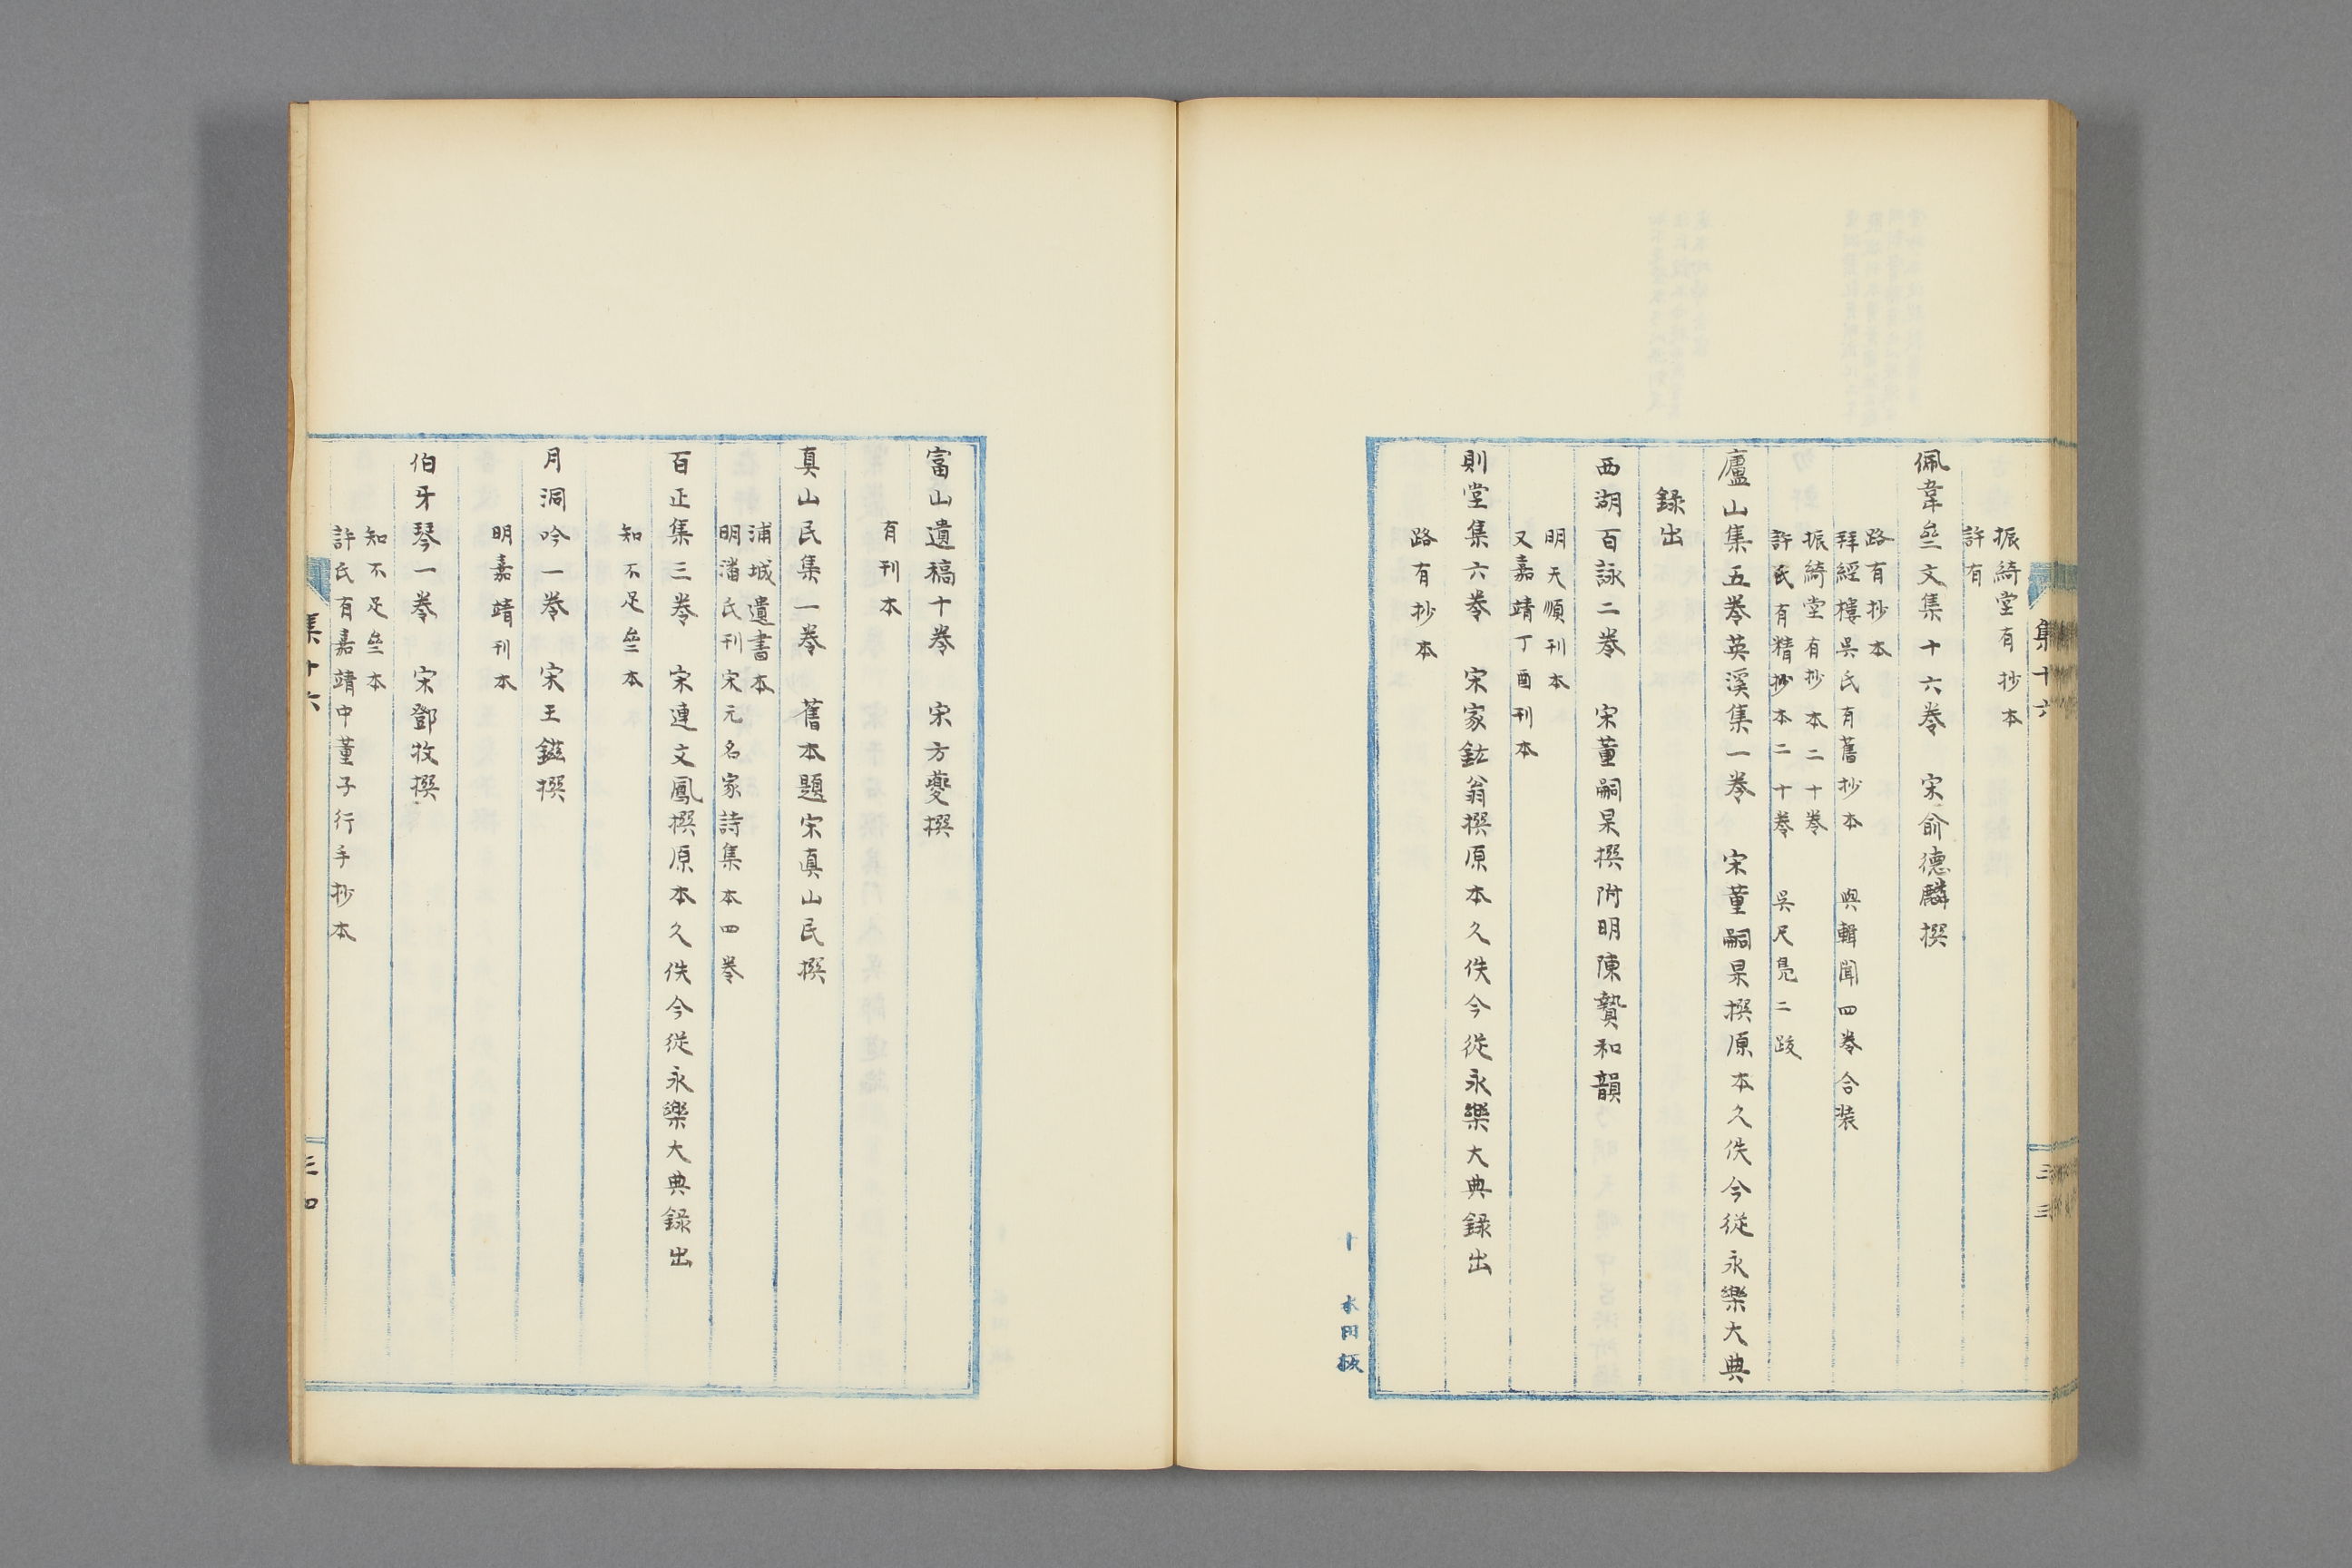 振綺堂有抄本
許有
佩韋亝文集十六卷　宋俞德麟撰
路有抄本
拜經樓吳氏有舊抄本　與輯聞四卷合装
振綺堂有抄本二十卷
許氏有精抄本二十卷　吳尺鳧二跋
廬山集五卷英溪集一卷　宋董嗣杲撰原本久佚今從永樂大典
録出
西湖百詠二卷　宋董嗣杲撰附明陳贄和韻
明天順刊本
又嘉靖丁酉刊本
則堂集六卷　宋家鉉翁撰原本久佚今從永樂大典録出
路有抄本
集十六
三三
本田板
富山遺稿十卷　宋方夔撰
有刊本
真山民集一卷　舊本題宋真山民撰
浦城遺書本
明潘氏刊宋元名家詩集本四卷
百正集三卷　宋連文鳳撰原本久佚今從永樂大典録出
知不足亝本
月洞吟一卷　宋王鎡撰
明嘉靖刊本
伯牙琴一卷　宋鄧牧撰
知不足亝本
許氏有嘉靖中董子行手抄本
集十六
三四